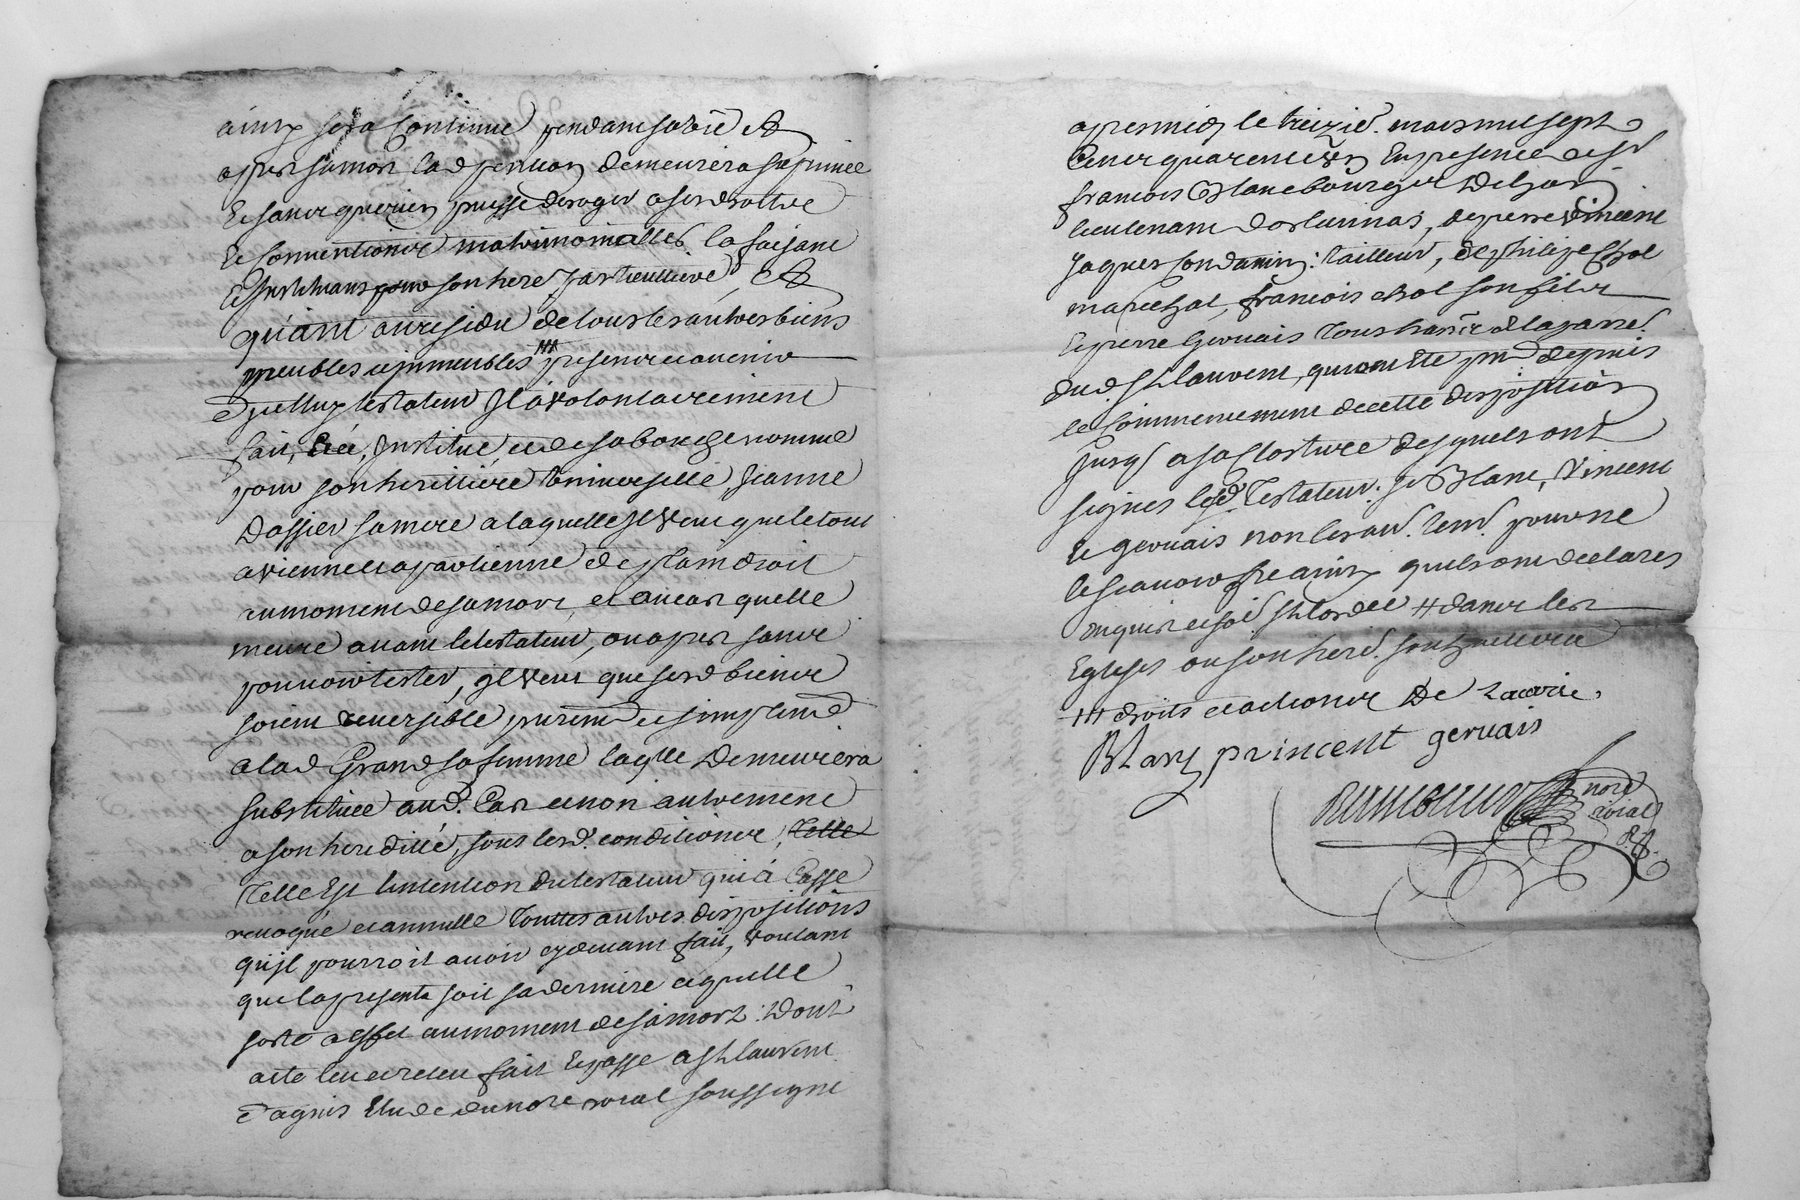 ainsy sera continué pendant sa vie et
apres sa mort lad pention demeurera suprimée
Et sans que rien puisse deroger a ses droits et
Et conventions matrimonialles la faisant
Et instituant pour son here particulliere, Et
quant au residu de tous les autres biens
meubles et immeubles ### presents et avenir
dicelluy testateur Il a volontairement
fait, créé, institué et de sa bouche nommé
pour son heritiere universelle Jeanne
Dassier sa mere a laquelle Il veut que le tout
avienne et apartienne de plain droit
au moment de sa mort, et au cas quelle
meure avant le testateur, ou apres sans
pouvoir tester, Il veut que sesd biens
soient reversible purem et simplem
a lad Grand sa femme laqlle demeurera
substituée aud. Cas et non autrement
a son heredité, sous lesd. conditions, Telle
Telle Est l'intention du testateur qui a Cassé
revoqué et annullé Touttes autres dispositions
qu'il pourroit avoir cy devant fait, voulant
que la presente soit sa derniere et quelle
sorte a effet au moment de sa mort: Dont
acte leu et releu fait Et passé a St laurent
d'agnis Etude du nore roial soussigné
apres midy le treizie. mars mil sept
Cent quarente Em presence de sr
francois Blanc bourgeois
lieutenant de pierre vincent
Jaques Condamin: tailleur, de philipe Chol
marechal, francois chol son fils
Et pierre Gervais tous de la parre.
dud. St laurent, qui ont Eté pnt depuis
le commencement de cette disposition
Jusq a sa Closture desquels ont
signés led. Testateur. sr Blanc, Vincent
Et gervais non les aud. tem. pour ne
le scavoir fre ainsy quils ont declarés
enquis et soé # dans les
Eglises ou son here.
### droits et actions De
Blanc princent gervais
nore
roial